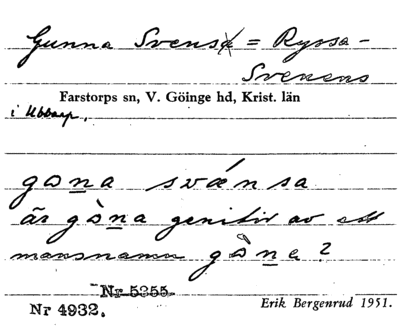 Gunna Svensa = Ryssa-
Svenens
Farstorps sn, V. Göinge hd, Krist. län
i Ubbarp.
gona svænsa
är gòna genitiv av ett
mansnamn gòna?
Nr 5255.
Nr 4932.
Erik Bergenrud 1951.